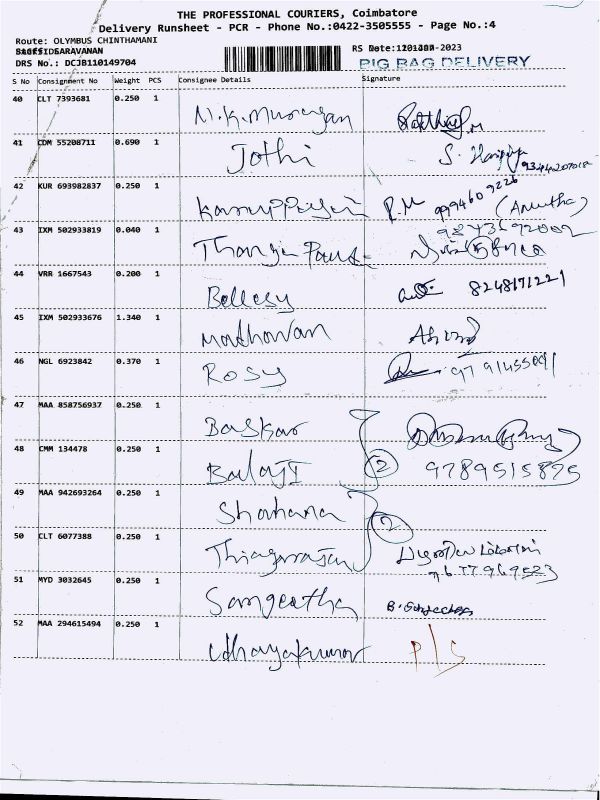 THE PROFESSIONAL COURIERS, Coimbatore
Delivery Runsheet - PCR - Phone No.:0422-3505555 - Page No.:4
Route: OLYMBUS CHINTHAMANI
SARAVANAN
RS Date: -2023
DRS No.: DCJB110149704
PIG BAG DELIVERY
S No Consignment No Weight PCS Consignee Details Signature
40 CLT 7393681 0.250 1 M.K.Murugan
41 CDM 55208711 0.690 1 Jothi S. 9344207018
42 KUR 693982837 0.250 1 Karuppayee P.M 9994609226 (Amutha)
43 IXM 502933819 0.040 1 Thangu 9843692002
44 VRR 1667543 0.200 1 8248171221
45 IXM 502933676 1.340 1 Madhavan
46 NGL 6923842 0.370 1 Rosy 9791455091
47 MAA 858756937 0.250 1 Baskar
48 CMM 134478 0.250 1 BalaJI 2 9789515875
49 MAA 942693264 0.250 1 Shahana
50 CLT 6077388 0.250 1 Thiagarajan 2 9677969523
51 MYD 3032645 0.250 1 Sangeetha
52 MAA 294615494 0.250 1 Udhayakumar P/S